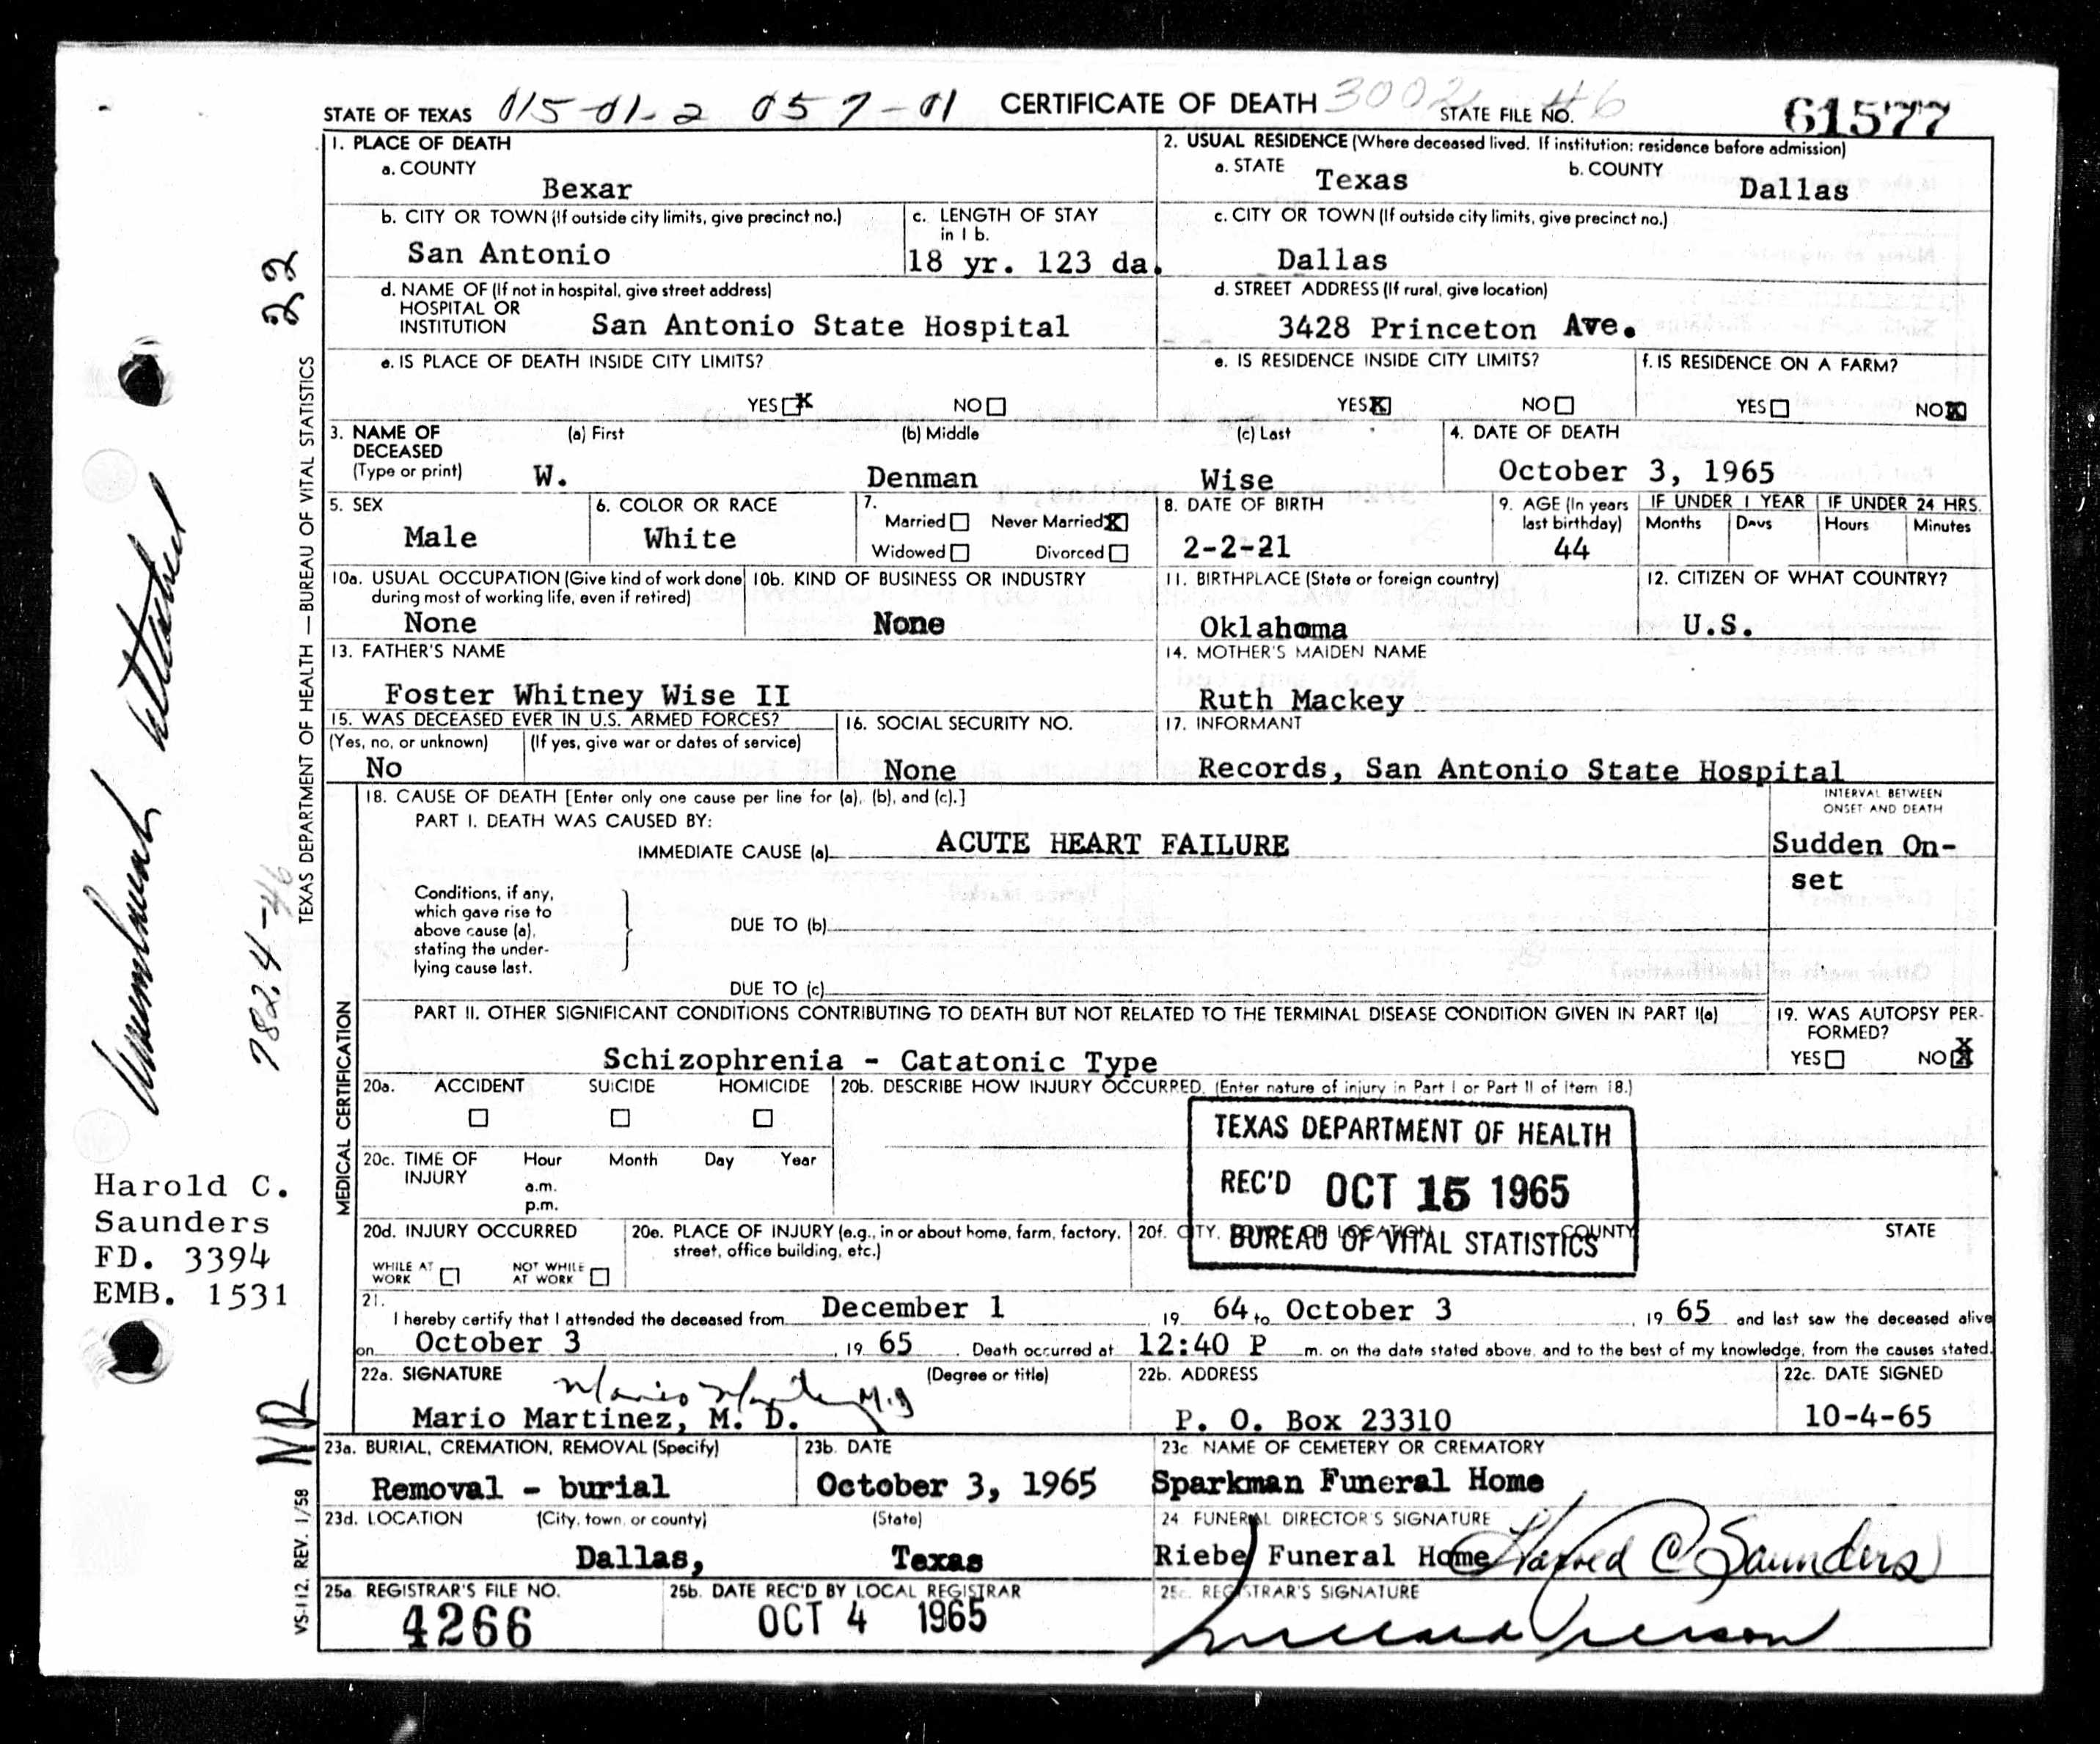 STATE OF TEXAS 015-01-2 057-01 CERTIFICATE OF DEATH 3002 46 STATE FILE NO. 61577
1. PLACE OF DEATH
a. COUNTY
Bexar
2. USUAL RESIDENCE (Where deceased lived. If institution: residence before admission)
a. STATE Texas b. COUNTY Dallas
b. CITY OR TOWN (If outside city limits, give precinct no.)
San Antonio
c. LENGTH OF STAY in 1 b.
18 yr. 123 da.
c. CITY OR TOWN (If outside city limits, give precinct no.)
Dallas
d. NAME OF (If not in hospital, give street address)
HOSPITAL OR
INSTITUTION San Antonio State Hospital
d. STREET ADDRESS (If rural, give location)
3428 Princeton Ave.
e. IS PLACE OF DEATH INSIDE CITY LIMITS?
YES X NO
e. IS RESIDENCE INSIDE CITY LIMITS?
YES X NO
f. IS RESIDENCE ON A FARM?
YES NO X
3. NAME OF DECEASED (Type or print)
(a) First (b) Middle (c) Last
W. Denman Wise
4. DATE OF DEATH
October 3, 1965
5. SEX
Male
6. COLOR OR RACE
White
7.
Married Never Married X
Widowed Divorced
8. DATE OF BIRTH
2-2-21
9. AGE (In years last birthday)
44
IF UNDER 1 YEAR
Months Days
IF UNDER 24 HRS.
Hours Minutes
10a. USUAL OCCUPATION (Give kind of work done during most of working life, even if retired)
None
10b. KIND OF BUSINESS OR INDUSTRY
None
11. BIRTHPLACE (State or foreign country)
Oklahoma
12. CITIZEN OF WHAT COUNTRY?
U.S.
13. FATHER'S NAME
Foster Whitney Wise II
14. MOTHER'S MAIDEN NAME
Ruth Mackey
15. WAS DECEASED EVER IN U.S. ARMED FORCES?
(Yes, no, or unknown) (If yes, give war or dates of service)
No
16. SOCIAL SECURITY NO.
None
17. INFORMANT
Records, San Antonio State Hospital
18. CAUSE OF DEATH [Enter only one cause per line for (a), (b), and (c).]
INTERVAL BETWEEN ONSET AND DEATH
PART I. DEATH WAS CAUSED BY:
IMMEDIATE CAUSE (a) ACUTE HEART FAILURE
Sudden On-
set
Conditions, if any,
which gave rise to
above cause (a),
stating the under-
lying cause last.
DUE TO (b)
DUE TO (c)
PART II. OTHER SIGNIFICANT CONDITIONS CONTRIBUTING TO DEATH BUT NOT RELATED TO THE TERMINAL DISEASE CONDITION GIVEN IN PART I(a)
Schizophrenia - Catatonic Type
19. WAS AUTOPSY PER-
FORMED?
YES NO X
20a. ACCIDENT SUICIDE HOMICIDE
20b. DESCRIBE HOW INJURY OCCURRED. (Enter nature of injury in Part I or Part II of item 18.)
20c. TIME OF INJURY
Hour Month Day Year
a.m.
p.m.
TEXAS DEPARTMENT OF HEALTH
REC'D OCT 15 1965
BUREAU OF VITAL STATISTICS
20d. INJURY OCCURRED
WHILE AT WORK NOT WHILE AT WORK
20e. PLACE OF INJURY (e.g., in or about home, farm, factory, street, office building, etc.)
20f. CITY, OR LOCATION COUNTY STATE
21.
I hereby certify that I attended the deceased from December 1, 19 64 to October 3, 19 65 and last saw the deceased alive
on October 3, 19 65. Death occurred at 12:40 P m. on the date stated above, and to the best of my knowledge, from the causes stated.
22a. SIGNATURE (Degree or title)
Mario Martinez, M. D.
22b. ADDRESS
P. O. Box 23310
22c. DATE SIGNED
10-4-65
23a. BURIAL, CREMATION, REMOVAL (Specify)
Removal - burial
23b. DATE
October 3, 1965
23c NAME OF CEMETERY OR CREMATORY
Sparkman Funeral Home
23d. LOCATION (City, town, or county) (State)
Dallas, Texas
24 FUNERAL DIRECTOR'S SIGNATURE
Riebe Funeral Home Harold C Saunders
25a REGISTRAR'S FILE NO.
4266
25b. DATE REC'D BY LOCAL REGISTRAR
OCT 4 1965
25c. REGISTRAR'S SIGNATURE
22
TEXAS DEPARTMENT OF HEALTH — BUREAU OF VITAL STATISTICS
MEDICAL CERTIFICATION
attached
782.4-46
Harold C.
Saunders
FD. 3394
EMB. 1531
NR
VS-112. REV. 1/58